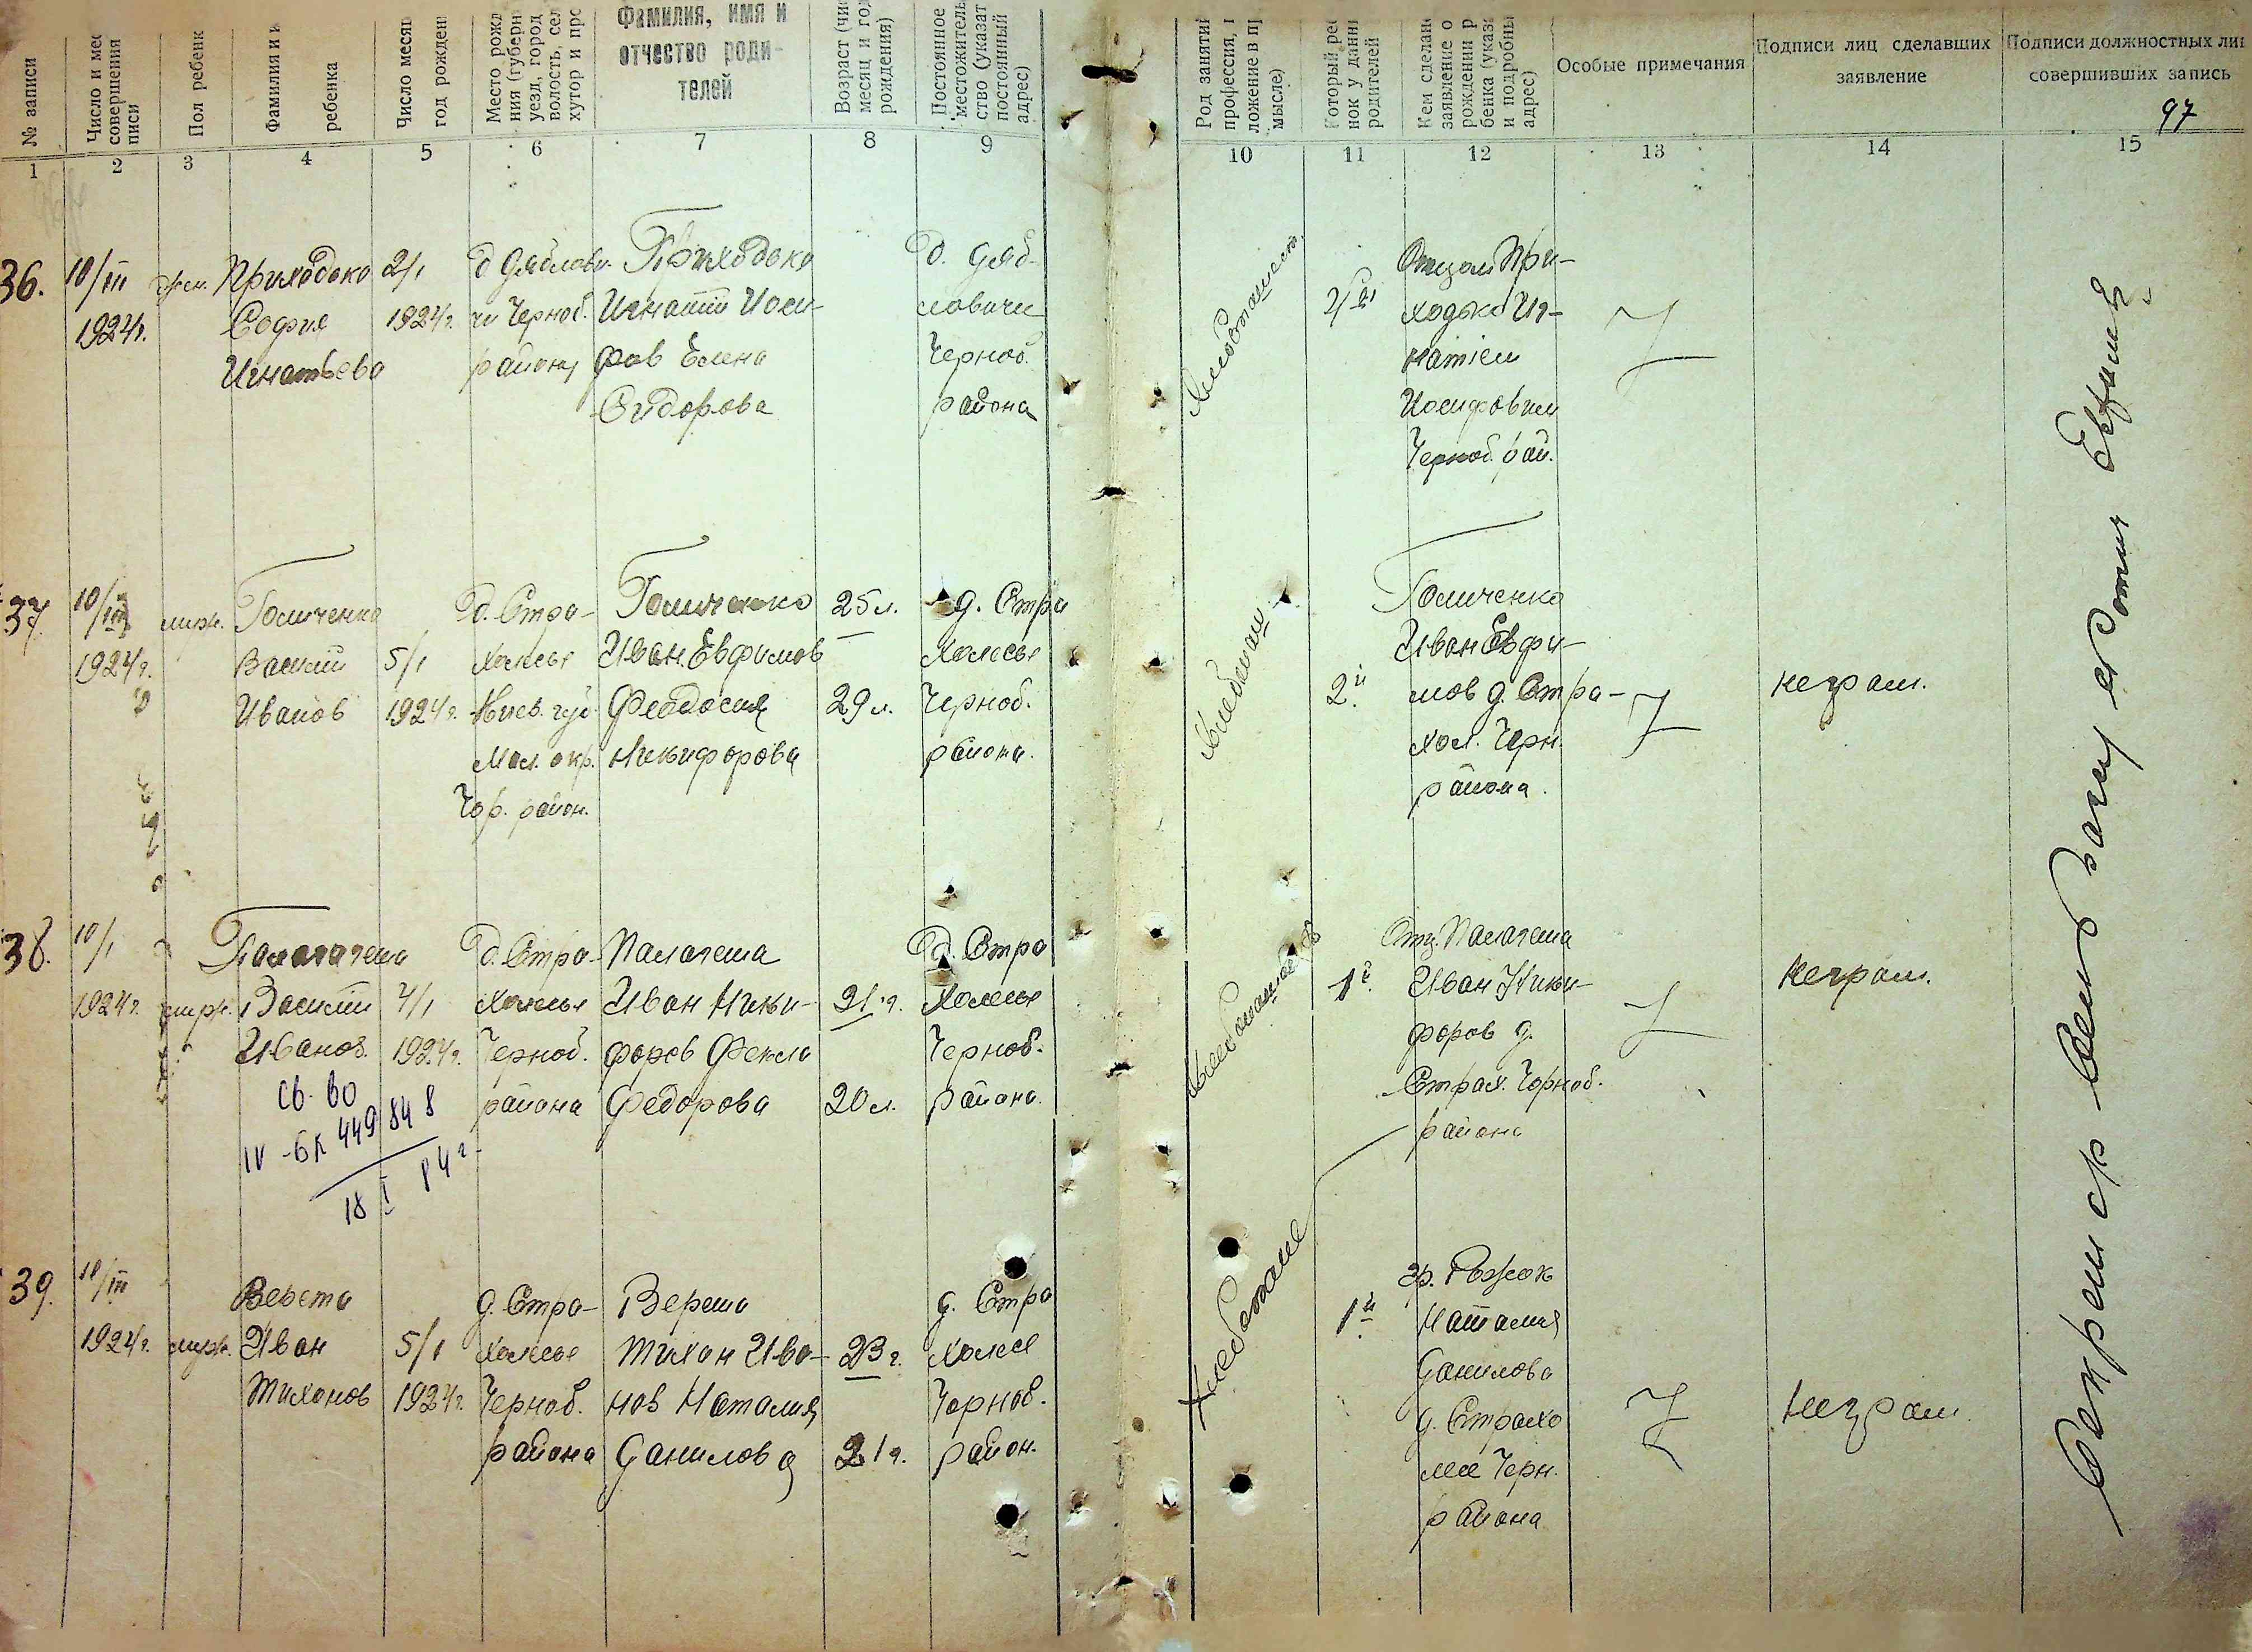 № записи
Число и мес
совершения
писи
Пол ребенк
Фамилия и и
ребенка
Число месяц
год рожден
Место рожд
ния (губерн
уезд, город
волость, сел
хутор и про
Фамилия, имя и
отчество роди-
телей
Возраст (чис
месяц и год
рождения)
Постоянное
местожитель
ство (указат
постоянный
адрес)
Род занятий
профессия,
ложение в пр
мысле)
Который ре
нок у данн
родителей
Кем сделан
заявление о
рождении р
бенка (указ
и подробны
адрес)
Особые примечания
Подписи лиц сделавших
заявление
Подписи должностных ли
совершивших запись
97
1 2 3 4 5 6 7 8 9 10 11 12 13 14 15
36.
10/III
1924г.
жен.
Приходько
София
Игнатьева
2/1
1924г.
д. Дяблови-
чи Черноб.
района
Приходько
Игнатий Иоси-
фов Елена
Сидорова
д. Дяб-
ловичи
Черноб.
района
Отцом При-
ходько Иг-
натіем
Иосифовим
Черноб. рай.
37.
10/III
1924г.
муж.
Гомиченко
Василий
Иванов
5/1
1924г.
д. Стра-
холесье
Киев. губ.
Мал. окр.
Чор. район.
Гомиченко
Иван Евфимов
Феодосия
Никифорова
25 л.
29 л.
д. Стра
холесье
Черноб.
района.
2й
Гомиченко
Иван Евфи-
мов д. Стра-
хол. Черн.
района.
неграм.
38.
10/1
1924г.
муж.
Василий
Иванов.
Св. во
IV-БК 449848
18 I 84г.
4/1
1924г.
д. Стра-
холесье
Черноб.
района
Палагеша
Иван Ники-
форов Фекла
Федорова
21 г.
20 л.
д. Стра
холесье
Черноб.
района.
1й
Отц. Палагеша
Иван Ники-
форов д.
Страх. Чорноб.
района
неграм.
39.
10/III
1924г.
муж.
Верета
Иван
Тихонов
5/1
1924г.
д. Стра-
холесье
Черноб.
района
Верета
Тихон Ива-
нов Наталия
Данилова
23 г.
21 г.
д. Стра
холесе
Чорноб.
район.
1й
гр.
Наталия
Данилова
д. Страхо
лесе Черн.
района
неграм.
Секретар